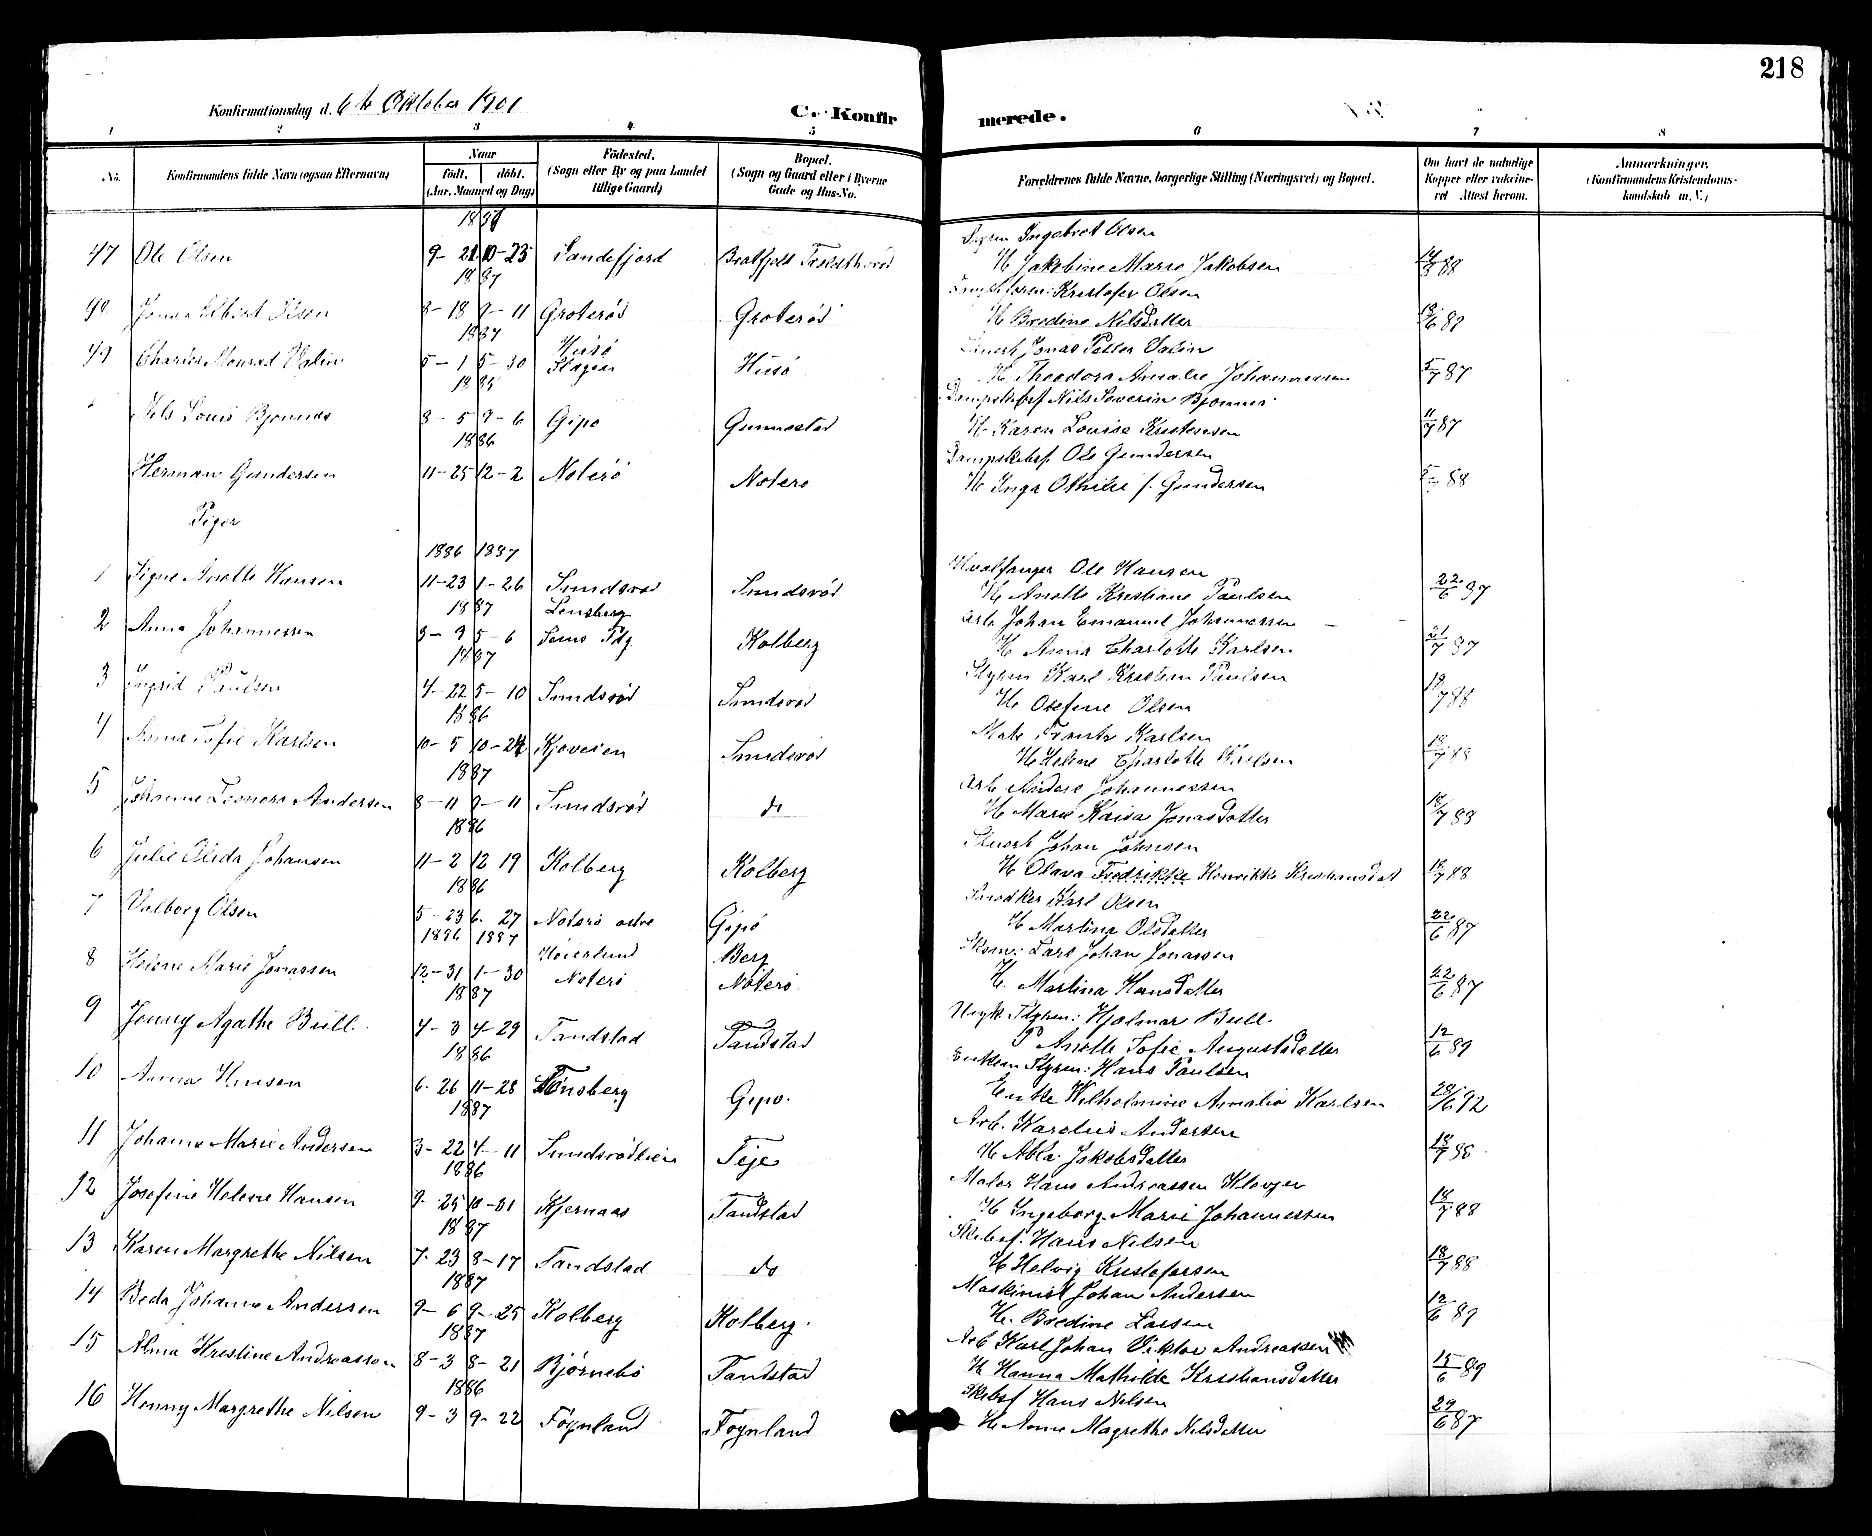 218
Konfirmationsdag d. 6te Oktober 1901
C. Konfir
merede.
1 2 3 4 5 6 7 8
No. Konfirmandens fulde Navn (ogsaa Efternavn) Naar Födested. Bopæl. Forældrenes fulde Navne, borgerlige Stilling (Næringsvei) og Bopæl. Om havt de naturlige Anmærkninger.
födt. döbt. (Sogn eller By og paa Landet (Sogn og Gaard eller i Byerne Kopper eller vaccine- (Konfirmandens Kristendoms-
(Aar, Maaned og Dag) tillige Gaard) Gade og Hus-No. ret Attest herom. kundskab m. V.)
Styrm Ingebret Olsen
47 Ole Olsen 9-21 10-23 Sandefjord H Jakobine Marie Jakobsen
1887
Kristofer Olsen
8-18 9-11 Groterød Groterød H Bredine Nilsdatter
1887
Husø Jonas Petter Valin
Charles Monrad Valin 5-1 5-30 Husø H Theodora Amalie Johannessen 5/7 87
Dampskibsf Nils Severin Bjønnes
Nils Louis Bjønnes 8-5 9-6 Gipø Gunnestad H Karen Louise Kristensen 11/7 87
1886 Dampskibsf. Ole Gundersen
Herman Gundersen 11-25 12-2 Nøterø Nøterø H Inga Othilie f. Gundersen 88
Piger
1886 1887 Hvalfanger Ole Hansen
1 Signe Anette Hansen 11-23 1-26 Smidsrød Smidsrød H Anette Kristiane Paulsen 22/6 87
1887 Tønsberg Arb Johan Emanuel Johannessen
2 Anna Johannessen 3-9 5-6 Kolberg H Anna Charlotte Karlsen 21/7 87
1887 Styrm Karl Kristian Paulsen
3 Ingrid Paulsen 4-22 5-10 Smidsrød Smidsrød H Olefine Olsen 18/7 88
1886 Mats Frants Karlsen
4 Anna Sofie Karlsen 10-5 10-24 Kjøveien Smidsrød H Helene Charlotte Karlsen 18/7 88
1887 Arb Anders Johannessen
5 Johanne Leonora Andersen 8-11 9-11 Smidsrød do H Marie Kaisa Jonasdatter 18/7 88
1886 Stuert Johan Johnsen
6 Julie Olida Johansen 11-2 12 19 Kolberg Kolberg H Olava Fredrikke Henrikke Kristiansdat 18/7 88
1886 Snedker Karl Olsen
7 Valborg Olsen 5-23 6-27 Nøterø østre Gipø H Martine Olsdatter 22/6 87
1886 1887 Høierlund Berg Skom: Lars Johan Jonassen
8 Helene Marie Jonassen 12-31 1-30 Nøterø Nøterø H. Martina Hansdatter 22/6 87
1887 Ugk. Styrm: Hjalmar Bull.
9 Jenny Agathe Bull. 4-3 4-29 Tandstad Tandstad P Anette Sofie Augustsdatter 12/6 89
1886 Enkem Styrm: Hans Paulsen
10 Anna Hansen 6-26 11-28 Tønsberg Gipø. Enke Wilhelmine Amalie Karlsen 28/6 92
1887 Arb. Karolius Andersen
11 Johanne Marie Andersen 3-22 4-11 Smidsrødveien Teje H Abla Jakobsdatter 18/7 88
1886 Maler Hans Andreassen Kløvjer
12 Josefine Helene Hansen 9-25 10-31 Kjernaas Tandstad H Ingeborg Marie Johannessen 18/7 88
1887 Skibsf. Hans Nilsen
13 Karen Margrethe Nilsen 7-23 8-17 Tandstad do H Helvig Kristofersen 18/7 88
1887 Maskinist Johan Andersen
14 Beda Johanne Andersen 9-6 9-25 Kolberg Kolberg. H. Bredine Larsen 12/6 89
1887 Arb Karl Johan Viktor Andreassen
15 Alma Kristine Andreassen 8-3 8-21 Bjørnebo Tandstad H Hanna Mathilde Kristiansdatter 15/6 89
1886 Skibsf Hans Nilsen
16 Henny Margrethe Nilsen 9-3 9-22 Føynland Føynland H Anne Magrethe Nilsdatter 29/6 87